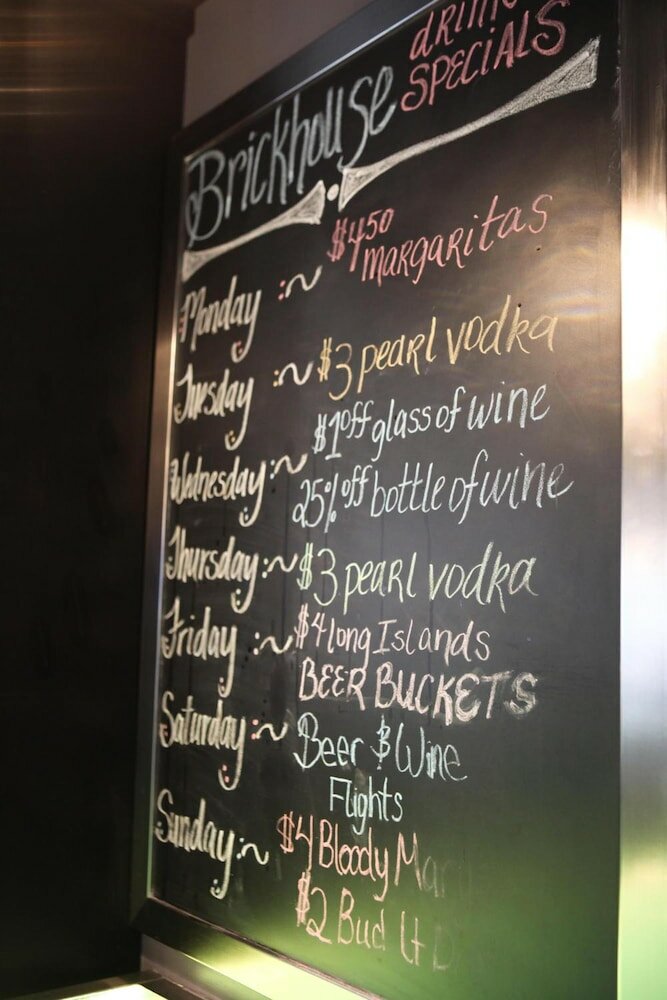 Brickhouse
SPECIALS
Monday :~ $4.50
margaritas
Tuesday :~ $3 pearl vodka
Wednesday :~ $1 off glass of wine
25% off bottle of wine
Thursday :~ $3 pearl vodka
Friday :~ $4 long Islands
BEER BUCKETS
Saturday :~ Beer & Wine
Flights
Sunday :~ $4 Bloody
$2 Bud Lt